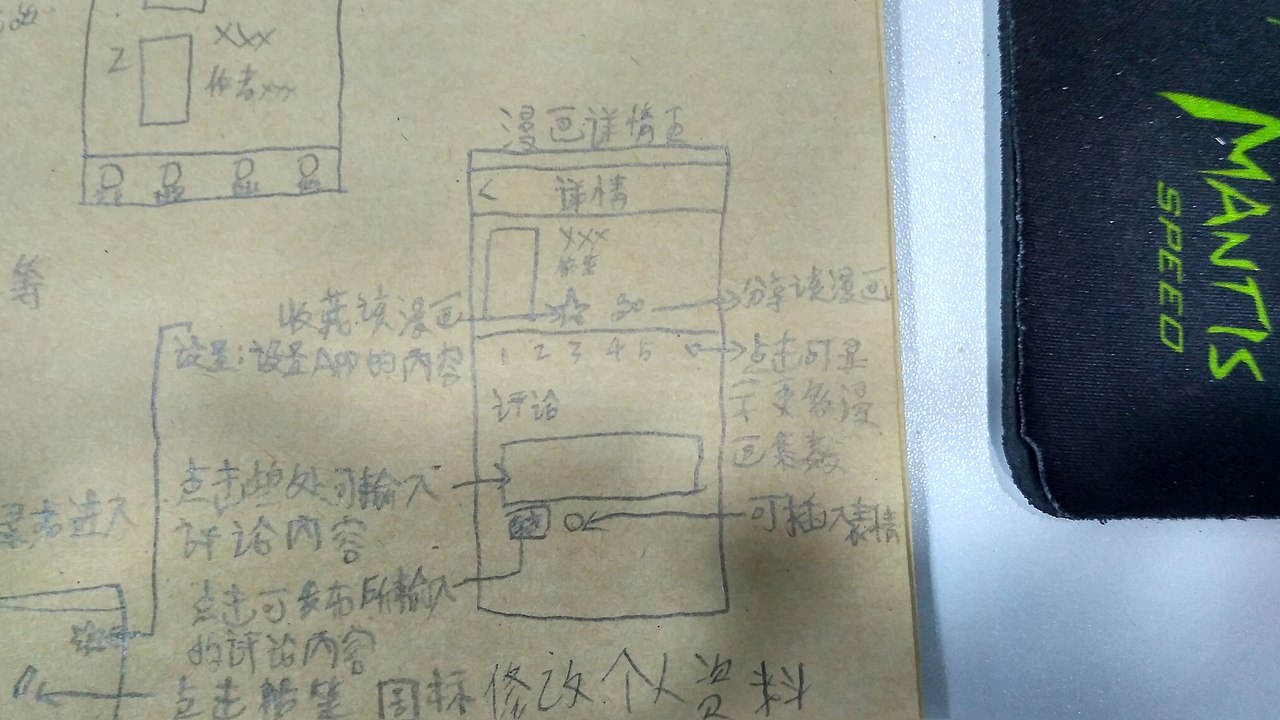 2
XXX
作者xx
漫画详情页
<
详情
XXX
作者
收藏该漫画
分享该漫画
设置:设置App的内容
1 2 3 4 5
点击可显
示更多漫
画集数
评论
点击此处可输入
评论内容
可插入表情
点击进入
等
点击可发布所输入
的评论内容
点击 图标修改个人资料
MANTIS
SPEED